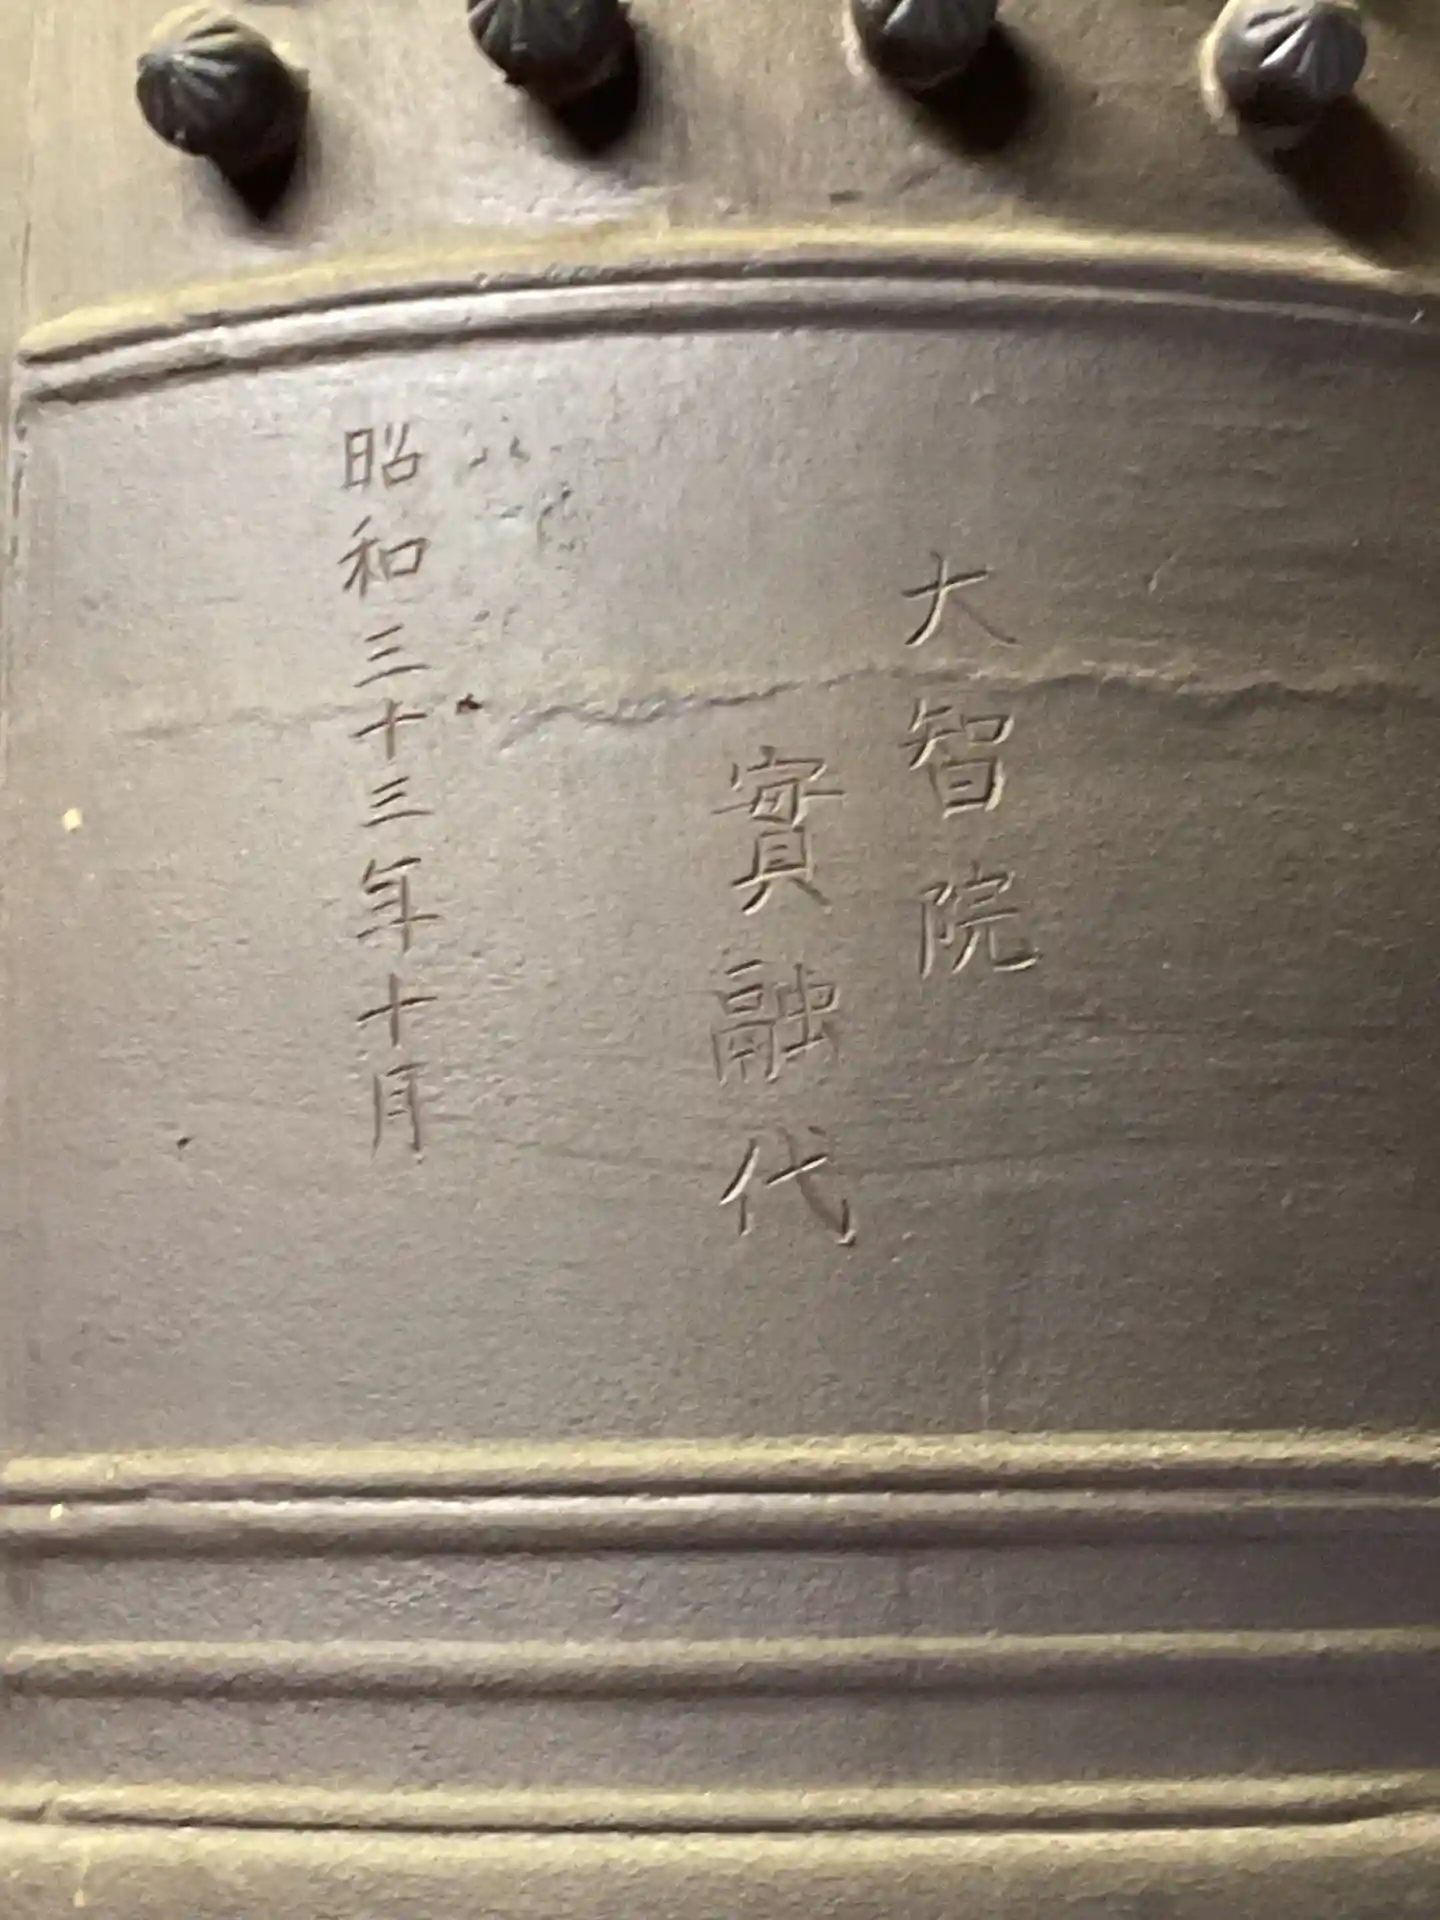 大智院
實融代
昭和三十三年十月